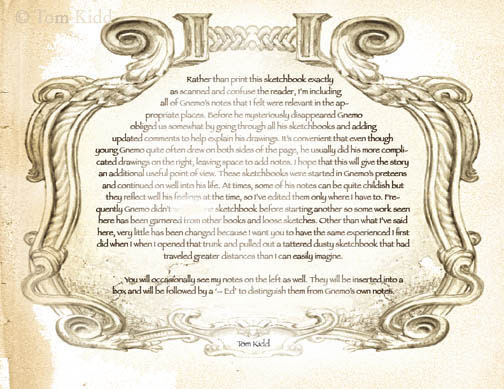 © Tom Kidd
Rather than print this sketchbook exactly
as scanned and confuse the reader, I'm including
all of Gnemo's notes that I felt were relevant in the ap-
propriate places. Before he mysteriously disappeared Gnemo
obliged us somewhat by going through all his sketchbooks and adding
updated comments to help explain his drawings. It's convenient that even though
young Gnemo quite often drew on both sides of the page, he usually did his more compli-
cated drawings on the right, leaving space to add notes. I hope that this will give the story
an additional useful point of view. These sketchbooks were started in Gnemo's preteens
and continued on well into his life. At times, some of his notes can be quite childish but
they reflect well his feelings at the time, so I've edited them only where I have to. Fre-
quently Gnemo didn't sketchbook before starting another so some work seen
here has been garnered from other books and loose sketches. Other than what I've said
here, very little has been changed because I want you to have the same experienced I first
did when I when I opened that trunk and pulled out a tattered dusty sketchbook that had
traveled greater distances than I can easily imagine.
You will occasionally see my notes on the left as well. They will be inserted into a
box and will be followed by a '-- Ed' to distinguish them from Gnemo's own notes.
Tom Kidd